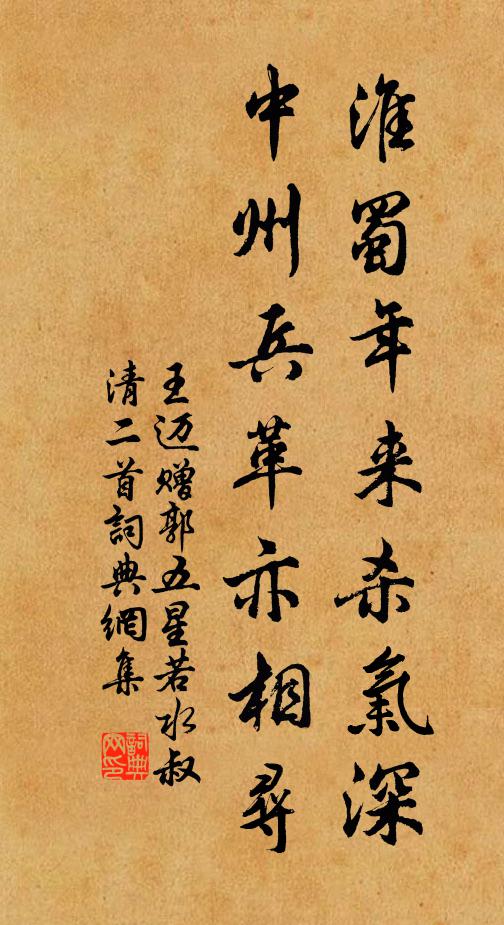 淮蜀年来杀氣深
中州兵革亦相尋
王迈赠郭五星若水叔
清二首詞典網集
詞典网印